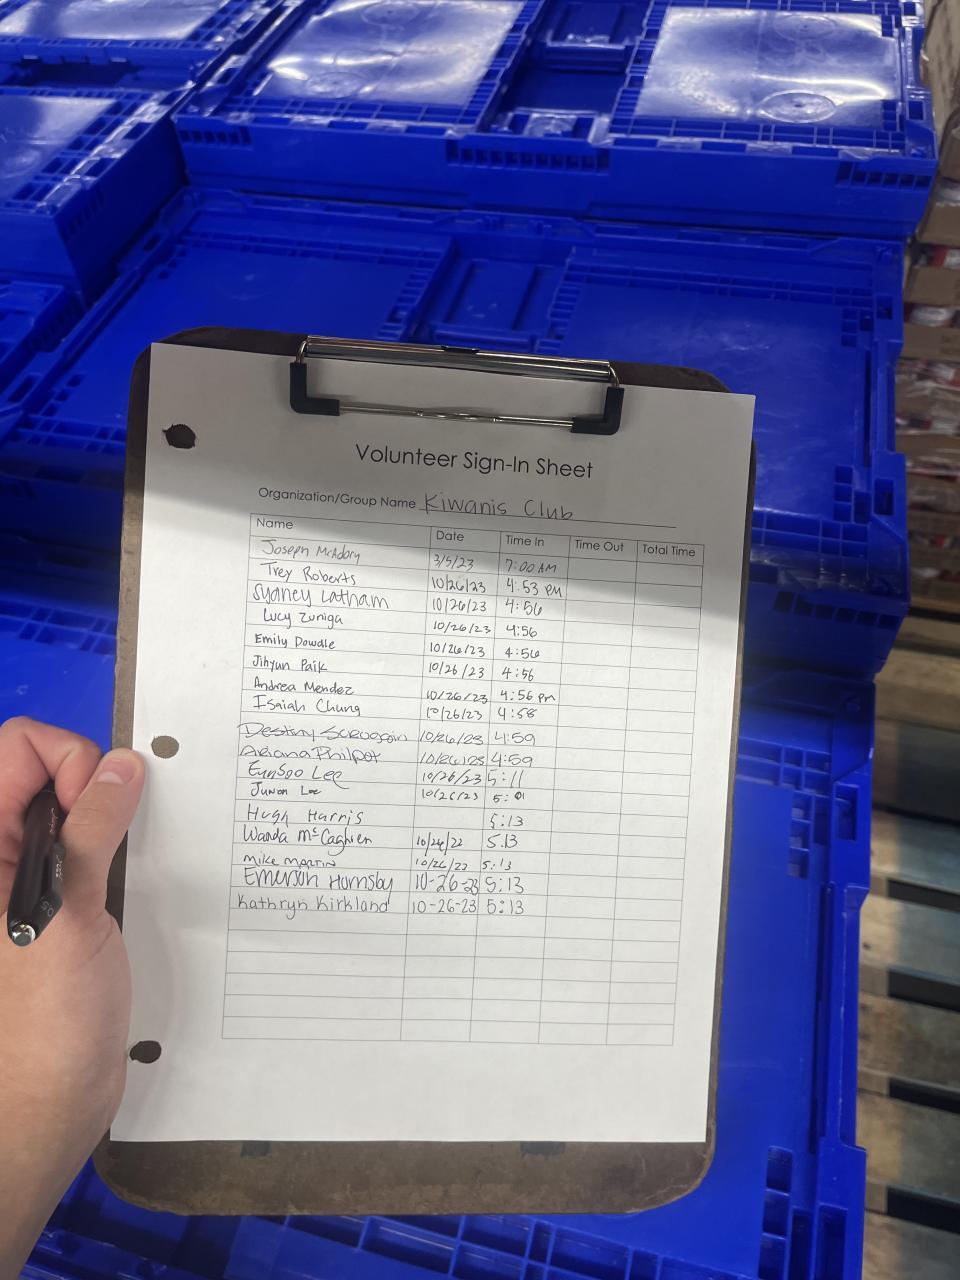 Volunteer Sign-In Sheet
Organization/Group Name Kiwanis Club
Name Date Time In Time Out Total Time
Joseph McAdory 3/5/23 7:00 AM
Trey Roberts 10/26/23 4:53 PM
Sydney Latham 10/26/23 4:56
Lucy Zuniga 10/26/23 4:56
Emily Dowdle 10/26/23 4:56
Jihyun Paik 10/26/23 4:56
Andrea Mendez 10/26/23 4:56 pm
Isaiah Chung 10/26/23 4:58
Destiny 10/26/23 4:59
Ariana Philpot 10/26/23 4:59
EunSoo Lee 10/26/23 5:11
Juwon Lee 10/26/23
Hugh Harris 5:13
Wanda McCaghren 10/26/22 5:13
mike martin 10/26/22 5:13
Emerson Hornsby 10-26-23 5:13
Kathryn Kirkland 10-26-23 5:13